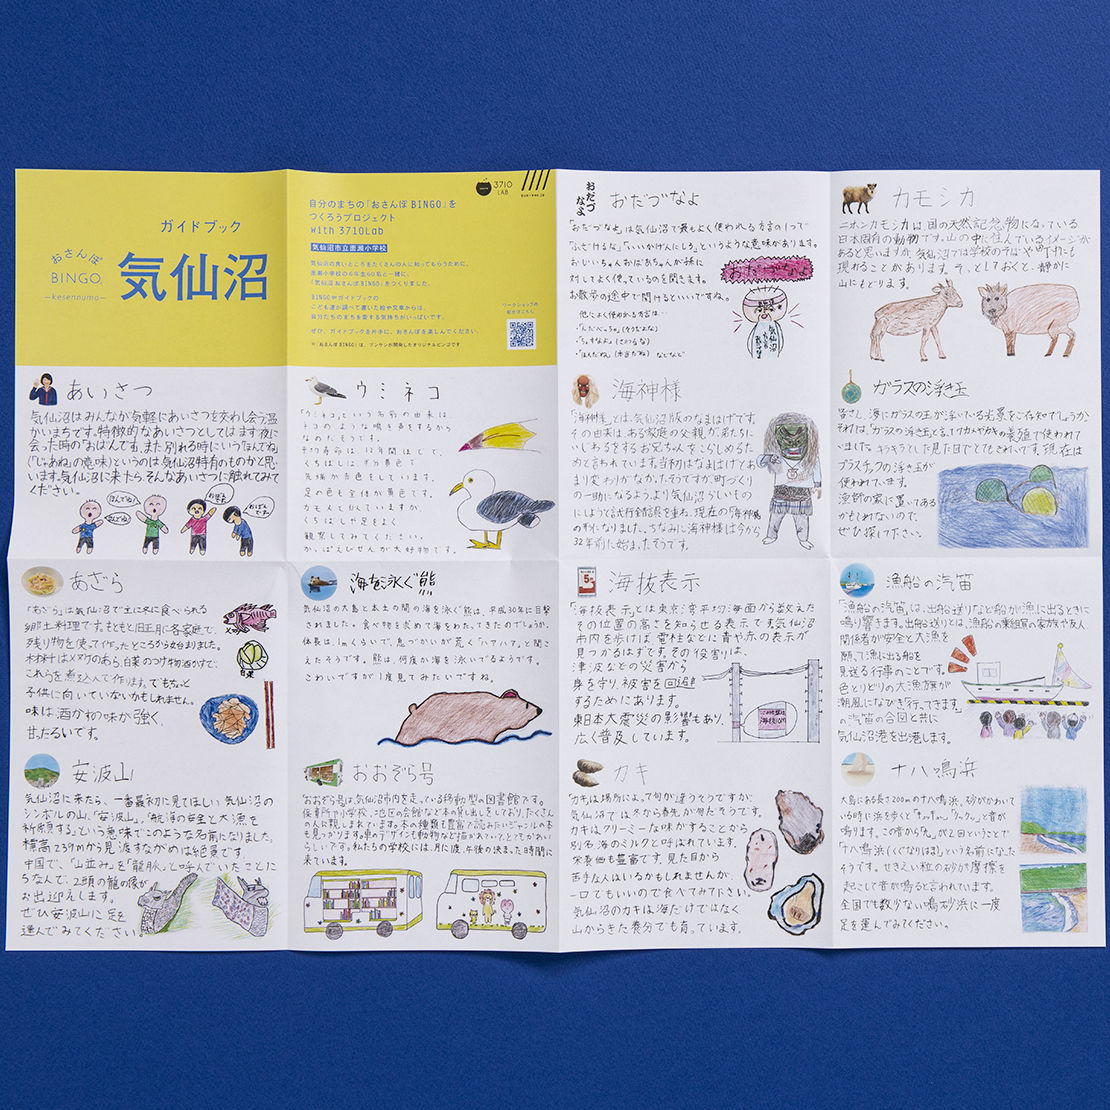 ガイドブック
おさんぽ
BINGO
—kesennuma—
気仙沼
3710
LAB
自分のまちの「おさんぽBINGO」を
つくろうプロジェクト
with 3710Lab
気仙沼市立面瀬小学校
気仙沼の良いところをたくさんの人に知ってもらうために、
面瀬小学校の6年生60名と一緒に、
「気仙沼おさんぽBINGO」をつくりました。
BINGOやガイドブックの
こども達が調べて書いた絵や文章からは、
自分たちのまちを愛する気持ちがいっぱいです。
ぜひ、ガイドブックを片手に、おさんぽを楽しんでください。
※「おさんぽBINGO」は、ブンケンが開発したオリジナルビンゴです
ワークショップの
様子はこちら
おだづ
なよ
おだづなよ
「おだづなよ」は気仙沼で最もよく使われる方言の1つで
「ふざけるな」「いいかげんにしろ」というような意味があります。
おじいちゃんおばあちゃんが孫に
対してよく使っているのを聞きます。
お散歩の途中で聞けるといいですね。
他によく使われる方言は…
おだづなよ
カモシカ
ニホンカモシカは、国の天然記念物になっている
日本固有の動物です。山の中に住んでいるイメージが
あると思いますが、気仙沼では学校の近くや町中にも
現れることがあります。そっとしておくと、静かに
山にもどります。
あいさつ
気仙沼はみんなが気軽にあいさつを交わし合う温
かいまちです。特徴的なあいさつとしては、まず夜に
会った時の「おばんです」、また別れる時にいう「ほんでね」
(「じゃあね」の意味)というのは気仙沼特有のものかと思
います。気仙沼に来たら、そんなあいさつに触れてみて
ください。
ほんでね!
おばんです。
ウミネコ
「ウミネコ」という名前の由来は、
ネコのような鳴き声をするから
なのだそうです。
平均寿命は、12年間ほどで、
くちばしは、予分黄色で
先端が赤色をしています。
足の色も全体が黄色です。
カモメと似ていますが、
くちばしや足をよく
観察してみてください。
かっぱえびせんが大好物です。
海神様
「海神様」とは、気仙沼版のなまはげです。
その由来は、ある家庭の父親が、弟たちに
いじわるをするお兄ちゃんをこらしめるた
めと言われています。当初はなまはげとあ
まり変わりがなかったそうですが、町づくり
の一助になるようより気仙沼らしいもの
にしようと試行錯誤を重ね、現在の「海神様」
の形になりました。ちなみに海神様は今から
32年前に始まったそうです。
ガラスの浮き玉
皆さん、海にガラスの玉が浮いている光景をご存知でしょうか。
プラスチックの浮き玉が
使われています。
漁師の家に置いてある
かもしれないので、
ぜひ探して下さい。
あざら
「あざら」は気仙沼で主に冬に食べられる
郷土料理です。もともと旧正月に各家庭で、
残り物を使って作ったところから始まりました。
材料はメヌケのあら、白菜のつけ物、酒かすで、
これらを煮込んで作ります。でもちょっと
子供に向いていないかもしれません。
味は、酒かすの味が強く、
甘だるいです。
メヌケ
白菜
海を泳ぐ熊
気仙沼の大島と本土の間の海を泳ぐ熊は、平成30年に目撃
されました。食べ物を求めて海をわたってきたのでしょうか。
体長は、1mくらいで、息づかいが荒く「ハアハア」と聞こ
えたそうです。熊は、何度か海を泳いでるようです。
こわいですが1度見てみたいですね。
海抜表示
「海抜表示」とは東京湾平均海面から数えた
その位置の高さを知らせる表示です。気仙沼
市内を歩けば電柱などに青や赤の表示が
見つかるはずです。その役割は、
津波などの災害から
身を守り、被害を回避
するためにあります。
東日本大震災の影響もあり、
広く普及しています。
漁船の汽笛
「漁船の汽笛」は、出船送りなど船が漁に出るときに
鳴り響きます。出船送りとは、漁船の乗組員の家族や友人、
関係者が安全と大漁を
願って漁に出る船を
見送る行事のことです。
色とりどりの大漁旗が
潮風になびき「行ってきます」
の汽笛の合図と共に
気仙沼港を出港します。
安波山
気仙沼に来たら、一番最初に見てほしい気仙沼の
シンボルの山、「安波山」。「航海の安全と大漁を
祈願する」という意味でこのような名前になりました。
標高239mから見渡すながめは絶景です。
中国で、「山並み」を「龍脈」と呼んでいたことに
ちなんで、2頭の龍の像が
お出迎えします。
ぜひ安波山に足を
運んでみてください。
おおぞら号
「おおぞら号」は、気仙沼市内を走っている移動型の図書館です。
保育所や小学校、地区の会館など本の貸し出しをしており、たくさん
の人に親しまれています。本の種類も豊富で読みたいジャンルの本
も見つかります。車のデザインも動物などが描かれていてとてもかわい
らしいです。私たちの学校には、月に1度、午後の決まった時間に
来ています。
カキ
「カキ」は場所によって旬が違うそうですが、
気仙沼では冬から春先が旬だそうです。
カキはクリーミーな味がすることから
別名、海のミルクと呼ばれています。
栄養価も豊富です。見た目から
苦手な人はいるかもしれませんが、
一口でもいいので食べてみて下さい。
気仙沼のカキは海だけではなく
山からきた養分でも育っています。
十八鳴浜
大島にある長さ200mの十八鳴浜。砂がかわいて
いる時に浜を歩くと「キュッキュッ」、「クックッ」と音が
鳴ります。この音から「九」が2回ということで
「十八鳴浜(くぐなりはま)」という名前になった
そうです。せきえい粒の砂が摩擦を
起こして音が鳴ると言われています。
全国でも数少ない鳴砂浜に一度
足を運んでみてください。